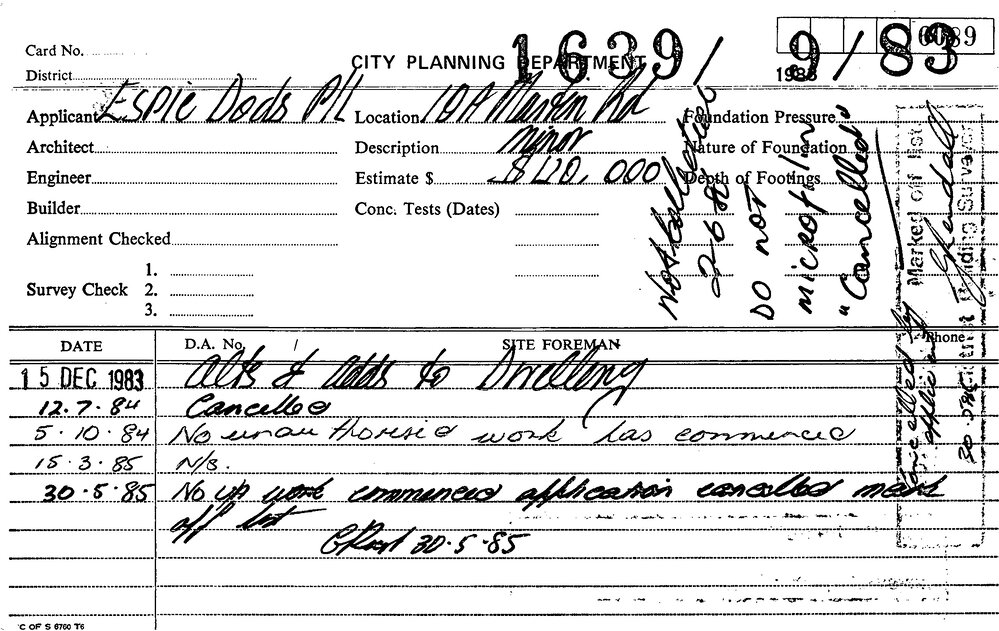 Card No.
1639/83
6089
CITY PLANNING DEPARTMENT
1983
9/83
District
Applicant Espie Dods P/L Location 10A Martin Rd Foundation Pressure
Architect Description Minor Nature of Foundation
Engineer Estimate $ $420,000 Depth of Footings
Builder Conc. Tests (Dates)
Alignment Checked
1.
Survey Check 2.
3.
DO NOT
microfilm
"Cancelled"
Marked off list
Building Surveyor
cancelled by
applicant
DATE D.A. No. / SITE FOREMAN Phone
15 DEC 1983 Alts & Adds to Dwelling
12.7.84 Cancelled
5.10.84 No unauthorised work has commenced
15.3.85 N/S.
30.5.85 No work commenced application cancelled mark
off list
30.5.85
C OF S 6760 T6